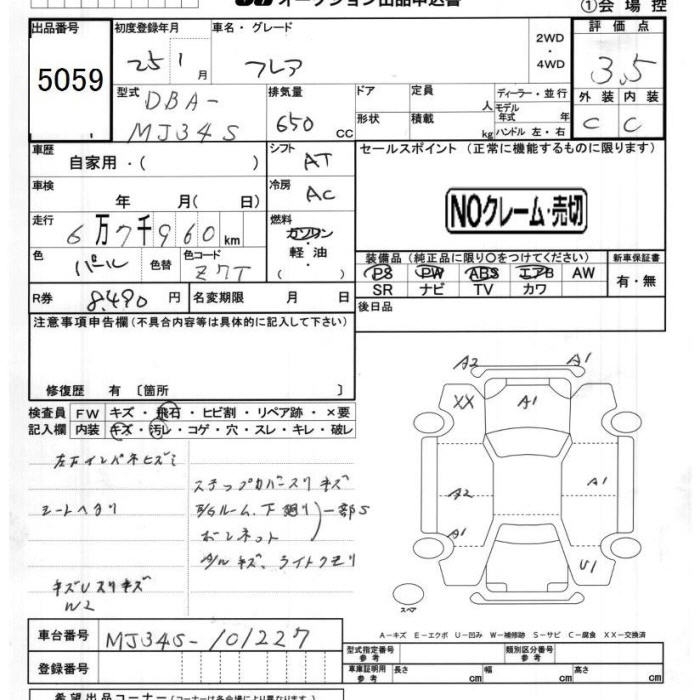 オークション出品申込書
①会場控
出品番号
5059
初度登録年月
25 1月
車名・グレード
フレア
2WD
4WD
評価点
3.5
型式
DBA-
MJ34S
排気量
650cc
ドア
形状
定員 人
積載 kg
ディーラー・並行
モデル年式 年
ハンドル 左・右
外装 内装
C C
車歴
自家用・( )
シフト
AT
セールスポイント (正常に機能するものに限ります)
NOクレーム・売切
車検
年 月( 日)
冷房
AC
走行
6万7千960km
燃料
ガソリン
軽油
色
パール
色替
色コード
Z7T
装備品(純正品に限り〇をつけてください)
PS PW ABS エアB AW
SR ナビ TV カワ
新車保証書
有・無
R券
8,490円
名変期限 月 日
後日品
注意事項申告欄(不具合内容等は具体的に記入して下さい)
修復歴 有〔箇所 〕
検査員
記入欄
FW キズ・飛石・ヒビ割・リペア跡・×要
内装 キズ・汚レ・コゲ・穴・スレ・キレ・破レ
左右インパネヒズミ
シートヘタリ
キズUスリキズ
W2
ステップカバースリキズ
E/Gルーム、下廻り
ボンネット
一部S
A/Wキズ、ライトクモリ
A2
A1
XX
A1
A2
A1
A1
U1
スペア
A-キズ E-エクボ U-凹み W-補修跡 S-サビ C-腐食 XX-交換済
車台番号
MJ34S-101227
登録番号
型式指定番号
参考
類別区分番号
参考
車庫証明用
参考
長さ cm
幅 cm
高さ cm
希望出品コーナー(コーナーは各会場により異なります)